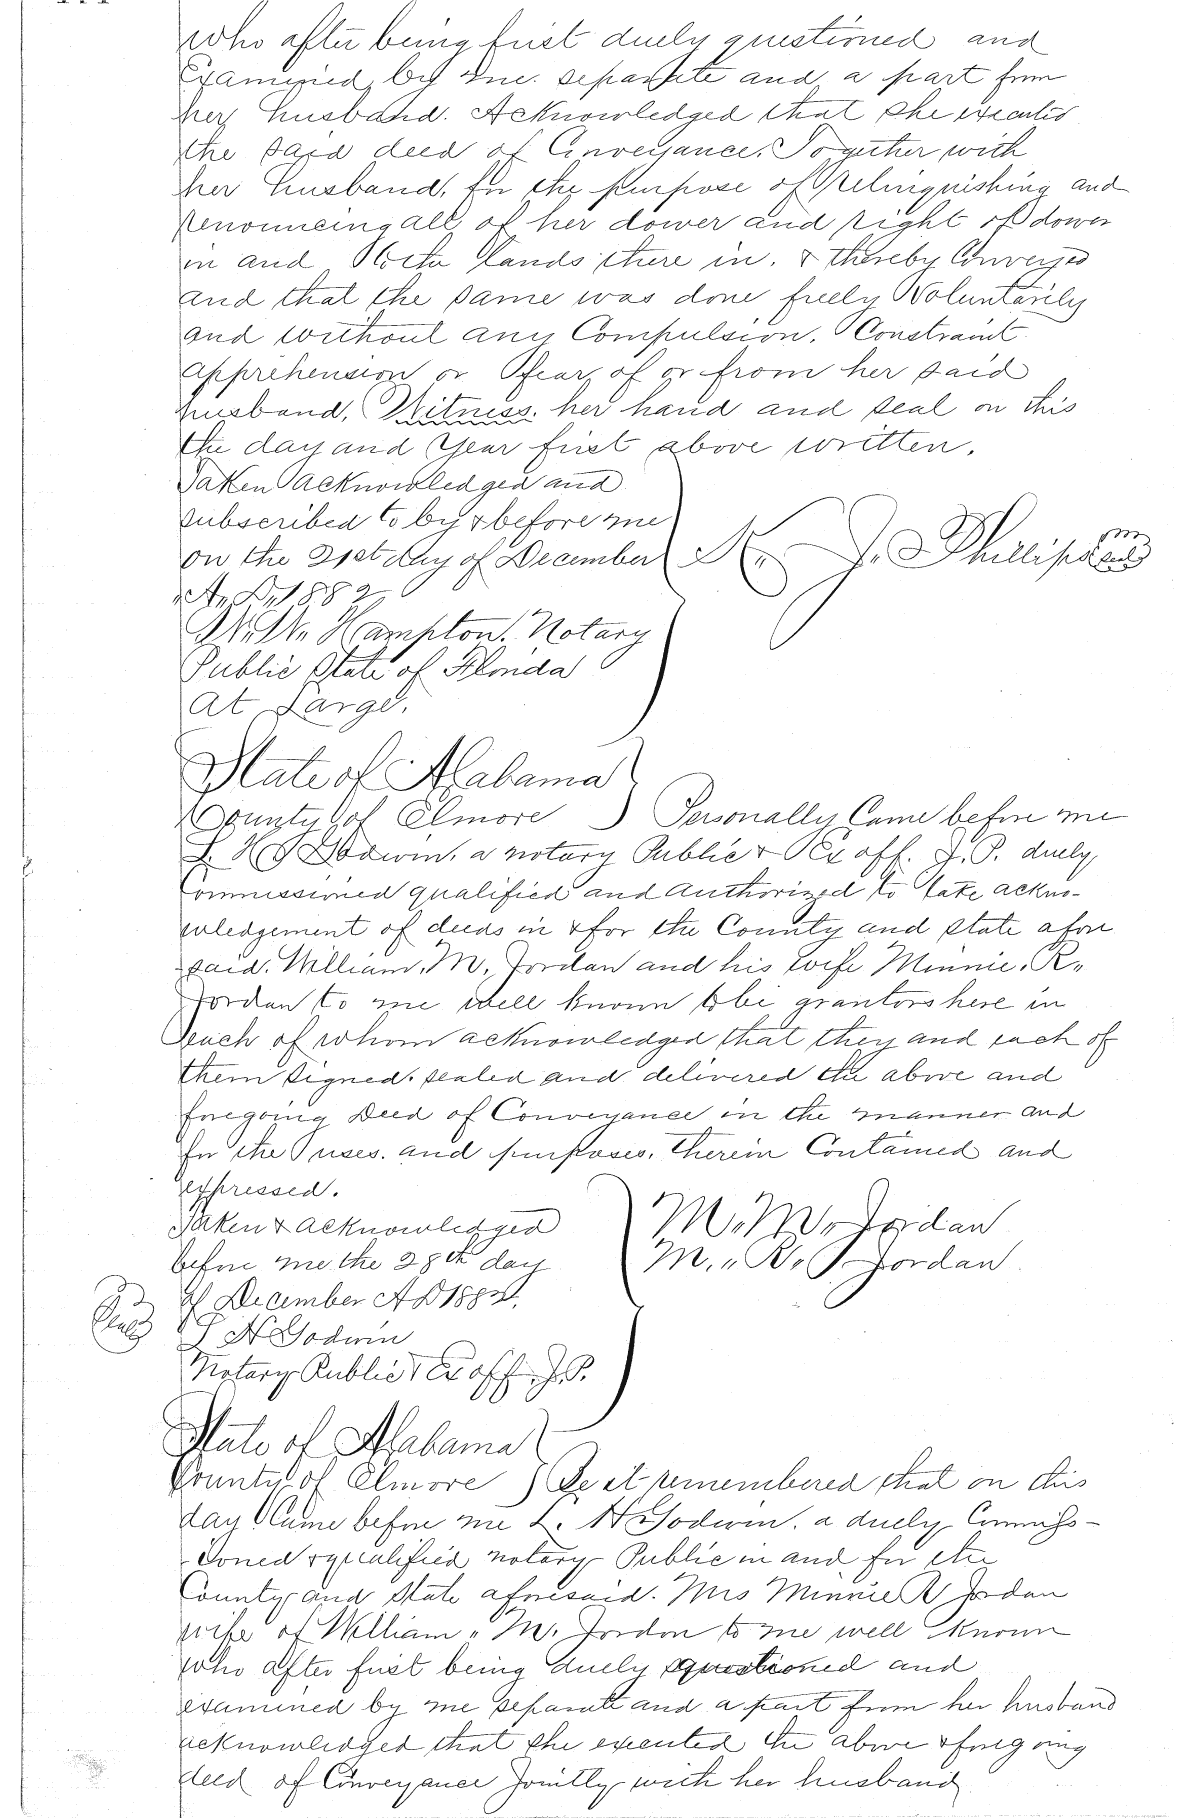 who after being first duely questioned and
Examined by me. separate and a part from
her husband. Acknowledged that she executed
the said deed of Conveyance. Together with
her husband, for the purpose of Relinquishing and
renouncing all of her dower and right of dower
in and to the lands there in. & thereby Conveyed
and that the same was done freely Voluntarily
and without any Compulsion. Constraint
apprehension or fear, of or from her said
husband, Witness. her hand and seal on this
the day and Year first above written.
Taken acknowledged and
subscribed to by & before me
on the 21st day of December
A. D. 1882
Hampton. Notary
Public State of Florida
At Large.
J. Phillips
Seal
State of Alabama
County of Elmore ) Personally Came before me
L. H. Godwin. a notary Public & Ex off. J. P. duely
Commissioned qualified and Authorized to take ackno-
wledgement of deeds in & for the County and state afore
said. William. M. Jordan and his wife Minnie. R.
Jordan to me well known to be grantors here in
Each of whom acknowledged that they and each of
them signed. sealed and delivered the above and
foregoing Deed of Conveyance in the manner and
for the uses. and purposes. therein Contained and
expressed.
Taken & acknowledged
before me the 28th day
of December A D
L H Godwin
Notary Public & Ex off J. P.
Seal
W. M. Jordan
M. R. Jordan
State of Alabama
County of Elmore ) Be it remembered that on this
day Came before me L. H Godwin. a duely Commiss-
ioned & qualified notary Public in and for the
County and State aforesaid. Mrs Minnie R Jordan
wife of William M. Jordon to me well known
who after first being duely questioned and
examined by me separate and a part from her husband
acknowledged that she executed the above & foregoing
deed of Conveyance Jointly with her husband